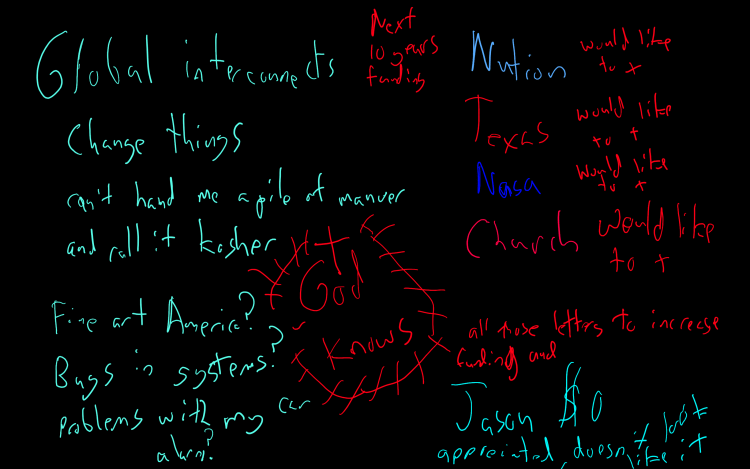 Global interconnects
Next
10 years
funding
Change things
can't hand me a pile of manuer
and call it kosher
Fine art America?
Bugs in systems?
problems with my car
alarm?
God
knows
Nation would like
to +
Texas would like
to +
Nasa would like
to +
Church would like
to +
all those letters to increase
funding and
Jason $0
appreciated, doesn't look
like it